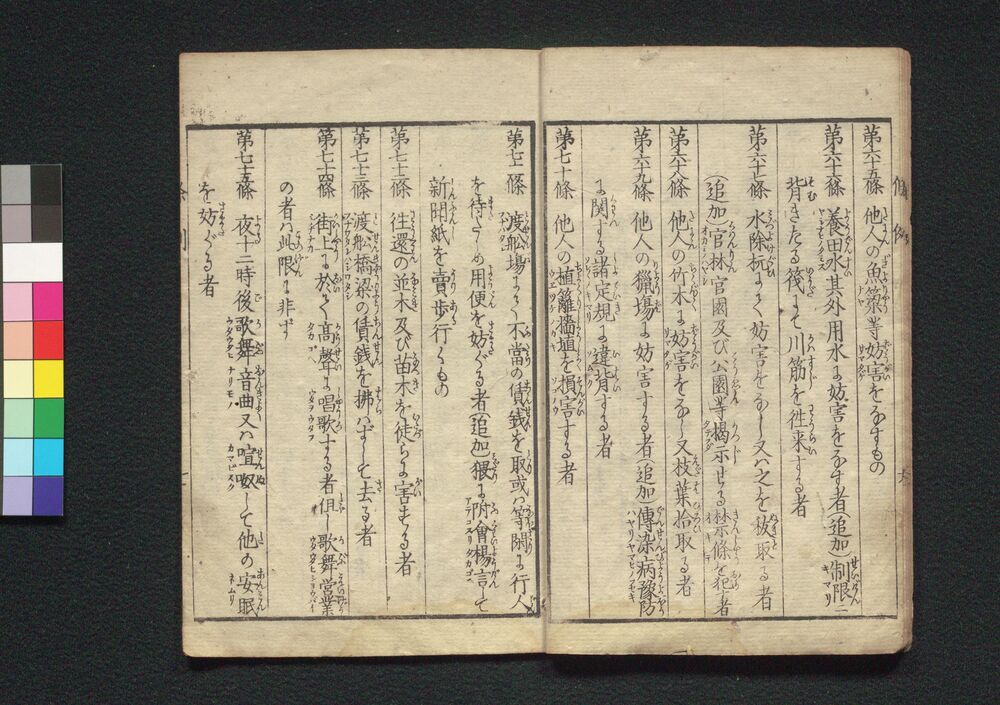 第六十五條 他人の魚簗等妨害をなすもの
第六十六條 養田水其外用水に妨害をなす者(追加)制限ニ
背きたる筏にて川筋を往来する者
第六十七條 水除杭にて妨害をなし又ハ之を拔取る者
(追加)官林官園及び公園等揭示せる禁條を犯者
第六十八條 他人の竹木に妨害をなし又枝葉拾取る者
第六十九條 他人の獵場に妨害する者(追加)傳染病豫防
に関する諸定規に違背する者
第七十條 他人の植籬牆垣を損害する者
第七十一條 渡船場にて不當の賃銭を取或ハ等閑に行人
を待たしめ用便を妨ぐる者(追加)猥に附會揚言して
新聞紙を賣歩行くもの
第七十二條 往還の並木及び苗木を徒らに害する者
第七十三條 渡船橋梁の賃銭を拂はずして去る者
第七十四條 街上に於て高聲に唱歌する者但し歌舞営業
の者ハ此限に非ず
第七十五條 夜十二時後歌舞音曲又ハ喧呶して他の安眠
を妨ぐる者